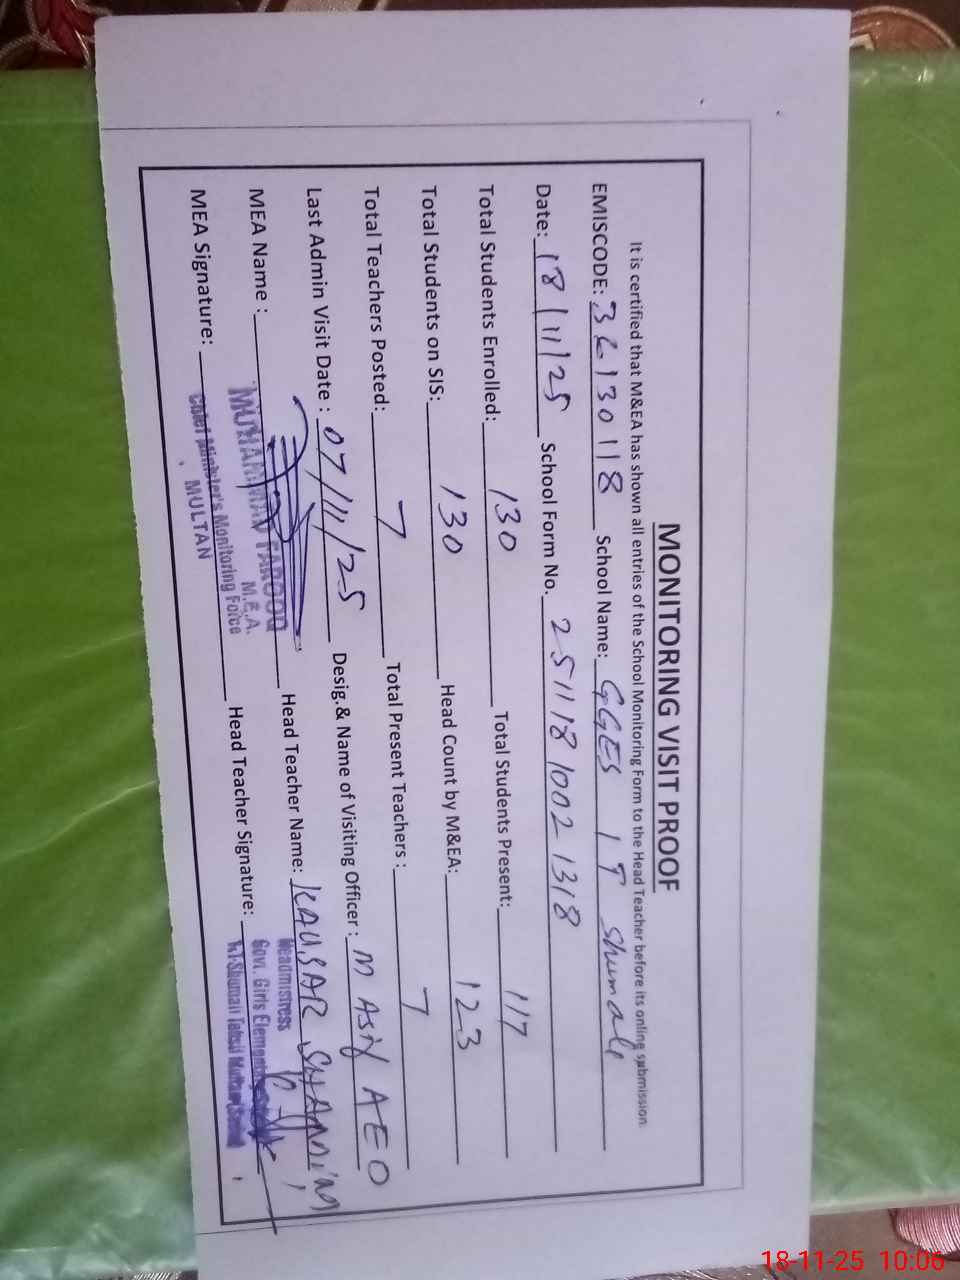 MONITORING VISIT PROOF
It is certified that M&EA has shown all entries of the School Monitoring Form to the Head Teacher before its online submission.
EMISCODE: 36130118 School Name: GGES 1 T Shumali
Date: 18/11/25 School Form No. 25111810021318
Total Students Enrolled: 130 Total Students Present: 117
Total Students on SIS: 130 Head Count by M&EA: 123
Total Teachers Posted: 7 Total Present Teachers : 7
Last Admin Visit Date : 07/11/25 Desig.& Name of Visiting Officer : M Asif AEO
MEA Name : MUHAMMAD FAROOQ Head Teacher Name: KAUSAR
M.E.A. Headmistress
MEA Signature: Chief Minister's Monitoring Force Head Teacher Signature: Govt. Girls Elementary
MULTAN Shumali Tahsil Multan
18-11-25 10:06